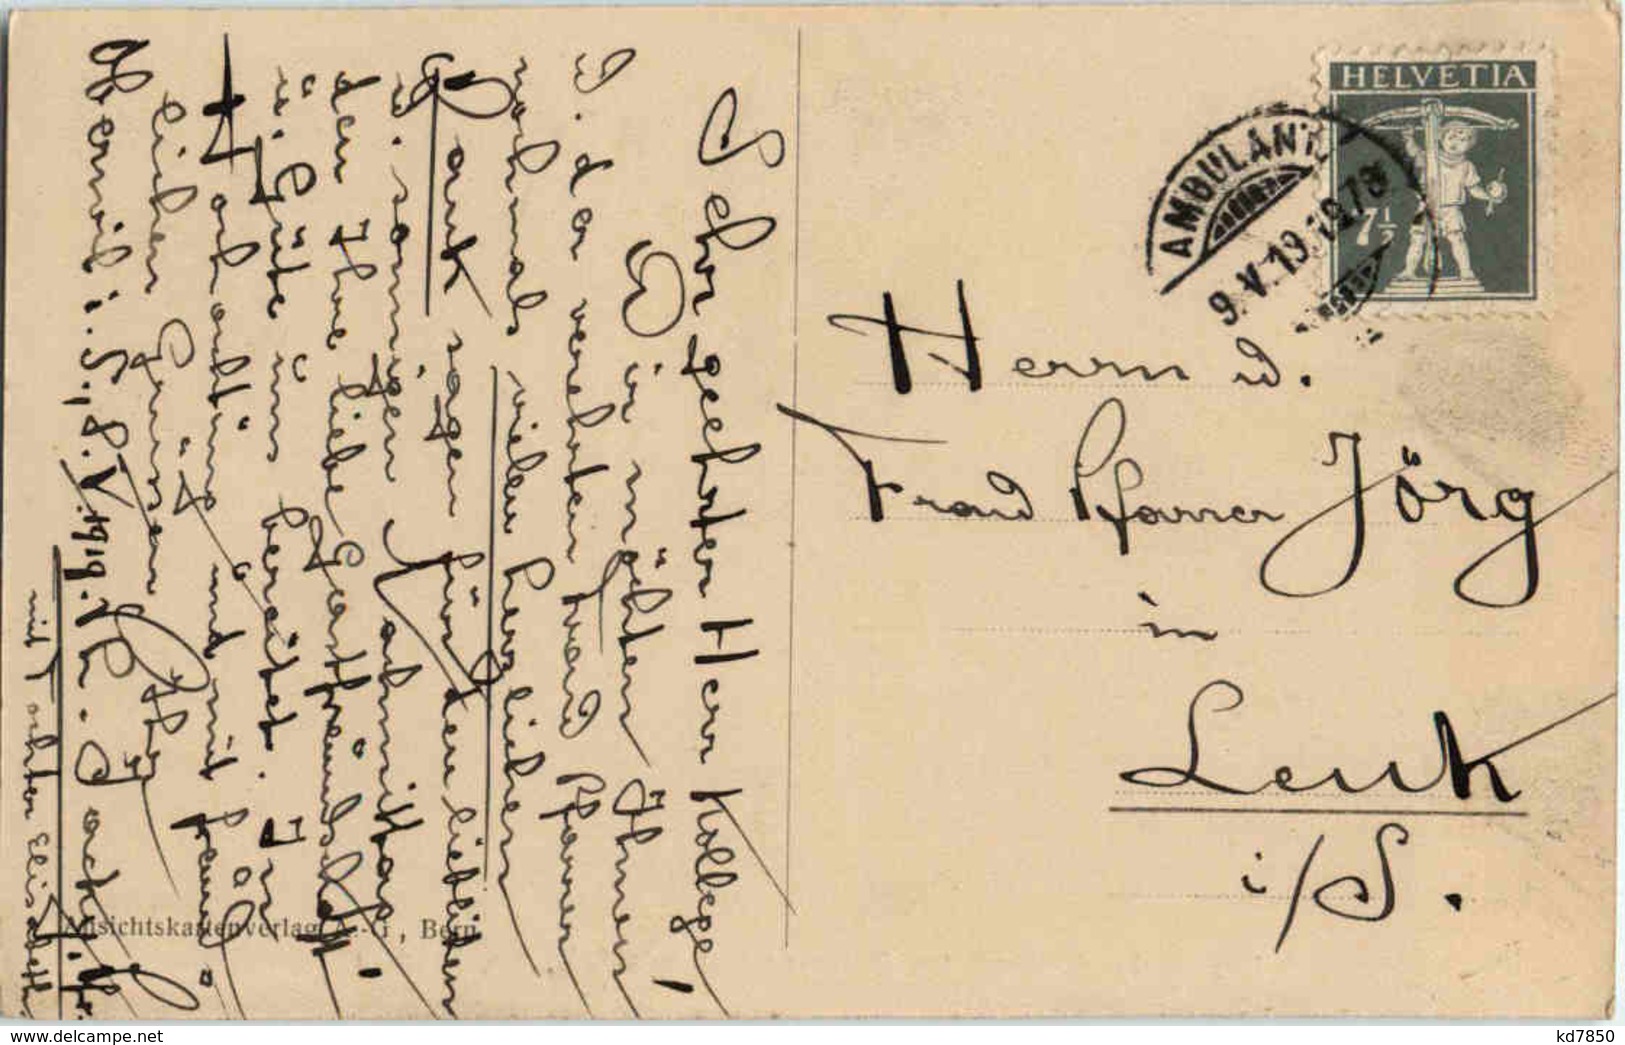 Sehr geehrter Herr Kollege!
Wir möchten Ihnen
u. der verehrten Frau Pfarrer
nochmals vielen herzlichen
Dank sagen für den lieblichen
u. sonnigen Nachmittag,
den Ihre liebe Gastfreundschaft
u. Güte uns bereitet. In
Hochachtung und mit freund-
lichen Grüssen
Ihr
8. V. 1919. H.
mit Tochter Elisabeth
Ansichtskartenverlag A.-G., Bern
HELVETIA
7½
AMBULANT
9.V.19.
Herrn u.
Frau Pfarrer Jörg
in
Lenk
i/S.
kd7850